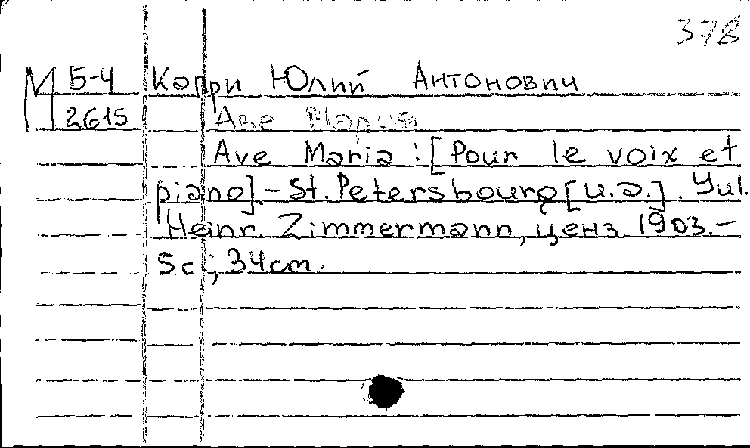 378
М 5-4 Капри Юлий Антонович
2615 Аве Мария
Ave Maria : [Pour le voix et
piano]. - St. Petersbourg [u.a.]. Yul.
Heinr. Zimmermann, ценз. 1903. -
5 c.; 34 cm.